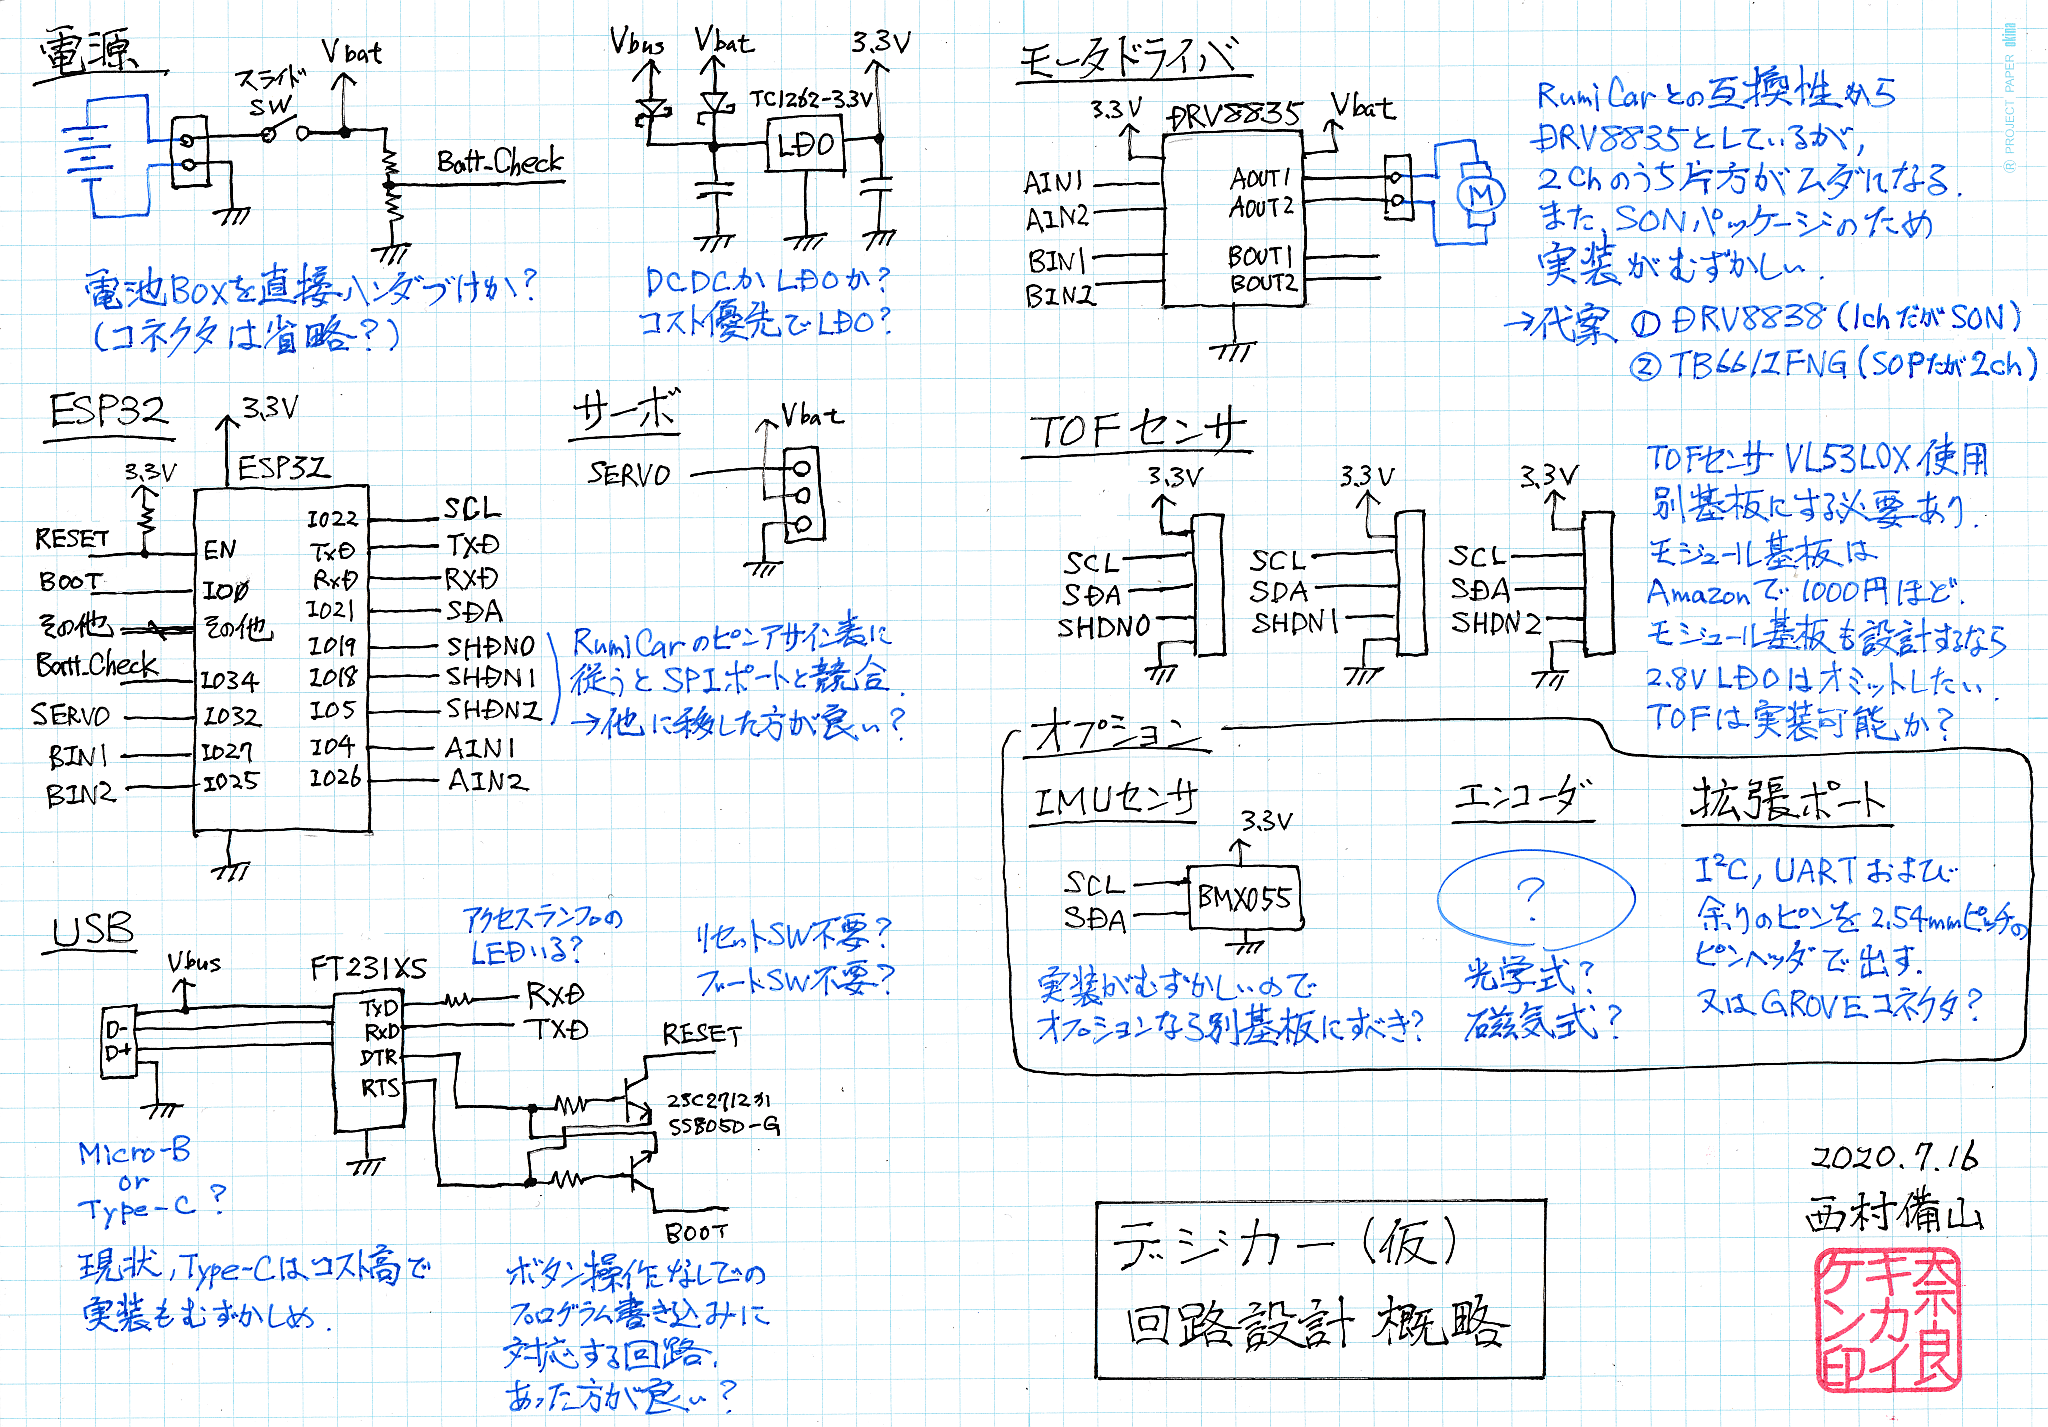 電源
スライド
SW
Vbat
Batt_Check
電池Boxを直接ハンダづけか?
(コネクタは省略?)
Vbus
Vbat
3.3V
TC1262-3.3V
LDO
DCDCかLDOか?
コスト優先でLDO?
モータドライバ
3.3V
DRV8835
Vbat
AIN1
AIN2
BIN1
BIN2
AOUT1
AOUT2
BOUT1
BOUT2
M
RumiCarとの互換性から
DRV8835としているが,
2chのうち片方がムダになる.
また、SONパッケージのため
実装がむずかしい.
→代案 ① DRV8838(1chだがSON)
② TB6612FNG(SOPだが2ch)
ESP32
3.3V
ESP32
3.3V
RESET
BOOT
その他
Batt_Check
SERVO
BIN1
BIN2
EN
IO0
その他
IO34
IO32
IO27
IO25
IO22
TxD
RxD
IO21
IO19
IO18
IO5
IO4
IO26
SCL
TXD
RXD
SDA
SHDN0
SHDN1
SHDN2
AIN1
AIN2
RumiCarのピンアサイン表に
従うとSPIポートと競合.
→他に移した方が良い?
サーボ
Vbat
SERVO
TOFセンサ
3.3V
SCL
SDA
SHDN0
3.3V
SCL
SDA
SHDN1
3.3V
SCL
SDA
SHDN2
TOFセンサ VL53L0X使用
別基板にする必要あり.
モジュール基板は
Amazonで1000円ほど.
モジュール基板も設計するなら
2.8V LDOはオミットしたい.
TOFは実装可能か?
オプション
IMUセンサ
3.3V
SCL
SDA
BMX055
実装がむずかしいので
オプションなら別基板にすべき?
エンコーダ
?
光学式?
磁気式?
拡張ポート
I²C, UARTおよび
余りのピンを2.54mmピッチの
ピンヘッダで出す.
又はGROVEコネクタ?
USB
Vbus
D-
D+
FT231XS
TxD
RxD
DTR
RTS
アクセスランプの
LEDいる?
RXD
TXD
リセットSW不要?
ブートSW不要?
RESET
2SC2712
SS8050-G
BOOT
Micro-B
or
Type-C?
現状,Type-Cはコスト高で
実装もむずかしめ.
ボタン操作なしでの
プログラム書き込みに
対応する回路.
あった方が良い?
デジカー(仮)
回路設計 概略
2020.7.16
西村備山
奈良
キカイ
ケン印
PROJECT PAPER okina